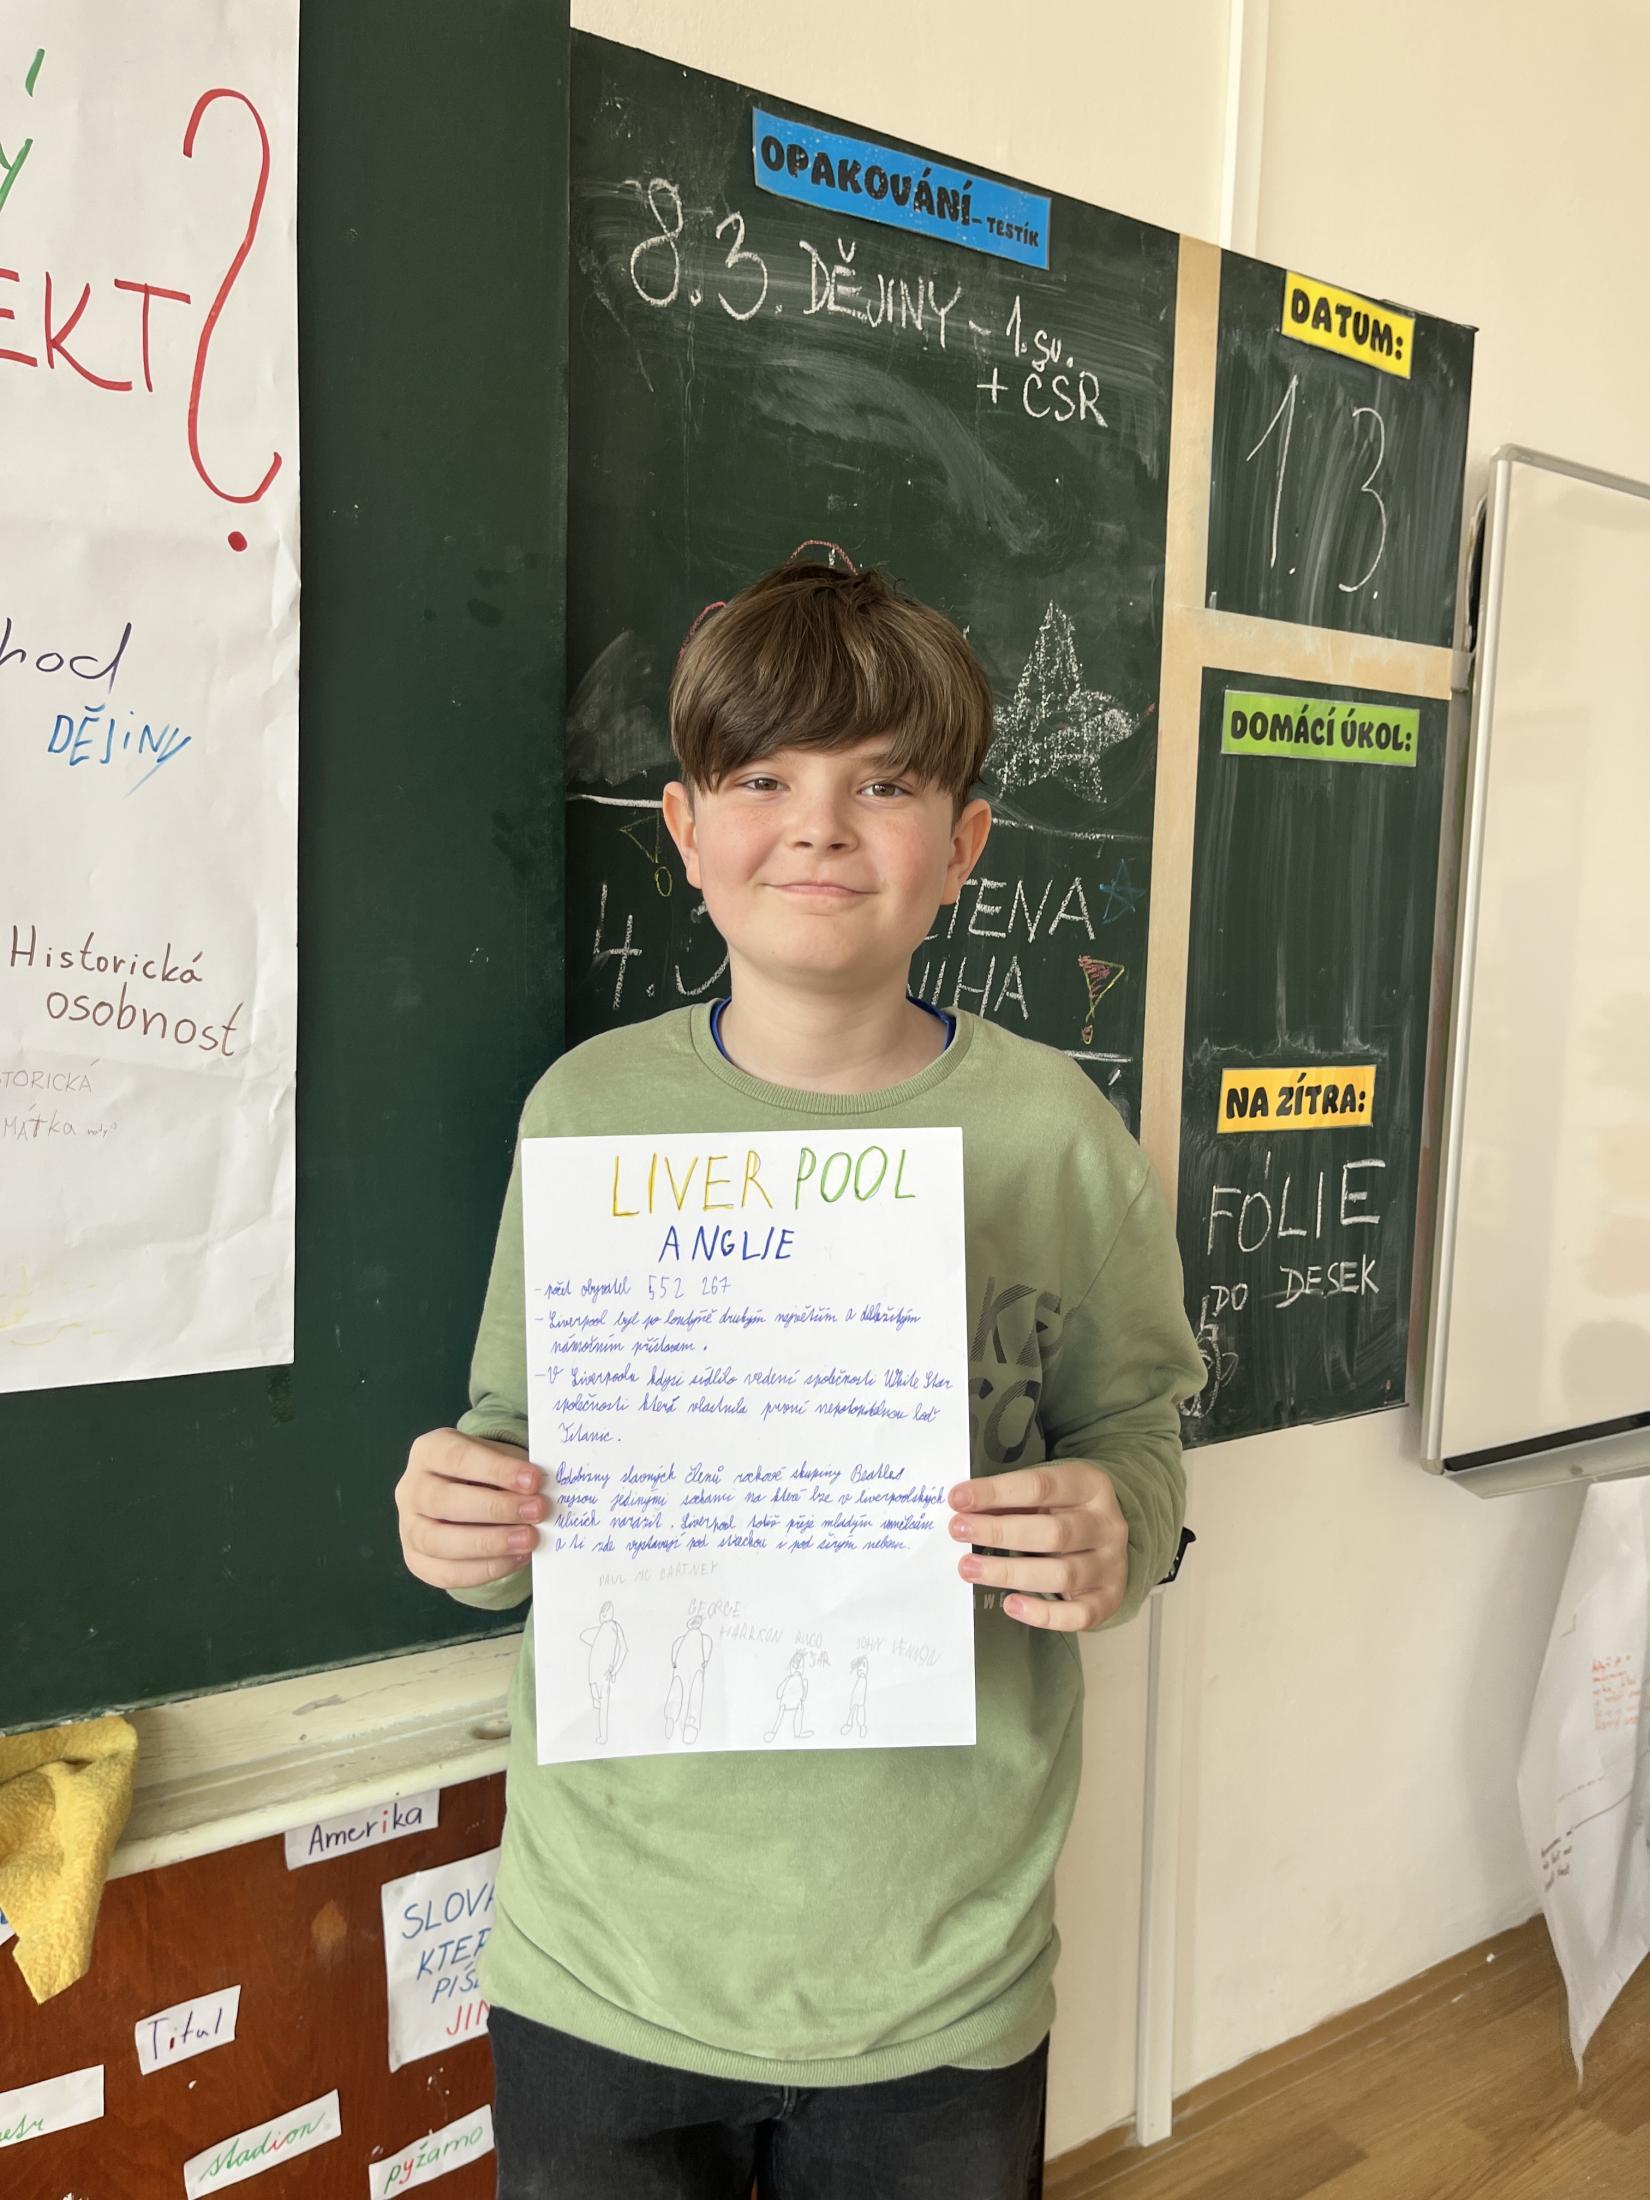 EKT?
DĚJINY
Historická
osobnost
OPAKOVÁNÍ - TESTÍK
8.3. DĚJINY - 1. sv.
+ ČSR
4.3
DATUM:
1.3.
DOMÁCÍ ÚKOL:
NA ZÍTRA:
FÓLIE
DO DESEK
LIVERPOOL
ANGLIE
- počet obyvatel 552 267
- Liverpool byl po londýně druhým největším a důležitým
námořním přístavem.
- V Liverpoolu kdysi sídlilo vedení společnosti White Star
společnosti která vlastnila první nepotopitelnou loď
Titanic.
- Podobizny slavných členů rockové skupiny Beatles
nejsou jedinými sochami na které lze v liverpoolských
ulicích narazit. Liverpool totiž přeje mladým umělcům
a ti zde vystavují pod střechou i pod širým nebem.
PAUL MC CARTNEY
GEORGE
HARRISON
JOHN LENNON
Amerika
Titul
stadion
pyžamo